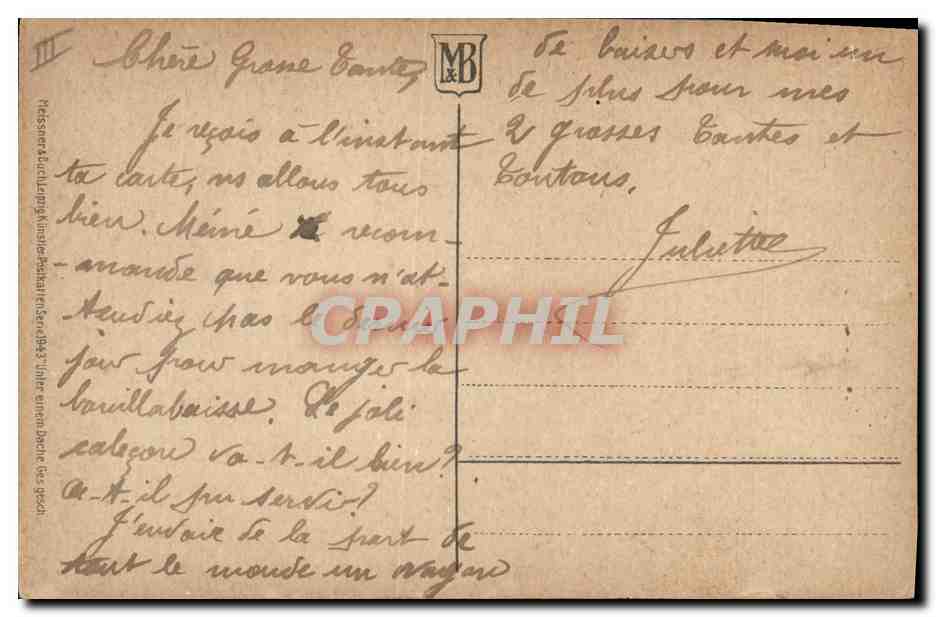 III
Chère Grosse Tante,
Je reçois à l'instant
ta carte, ns allons tous
bien. Méiné recom-
-mande que vous n'at-
tendiez pas le dernier
jour pour manger la
bouillabaisse. Le joli
caleçon va-t-il bien?
a-t-il pu servir?
J'envoie de la part de
tout le monde un wagon
M&B
de baisers et moi un
de plus pour mes
2 grosses Tantes et
Tontons.
Juliette
Meissner & Buch Leipzig Künstler-Postkarten Serie 1943 "Unter einem Dache Ges. gesch.
CPAPHIL